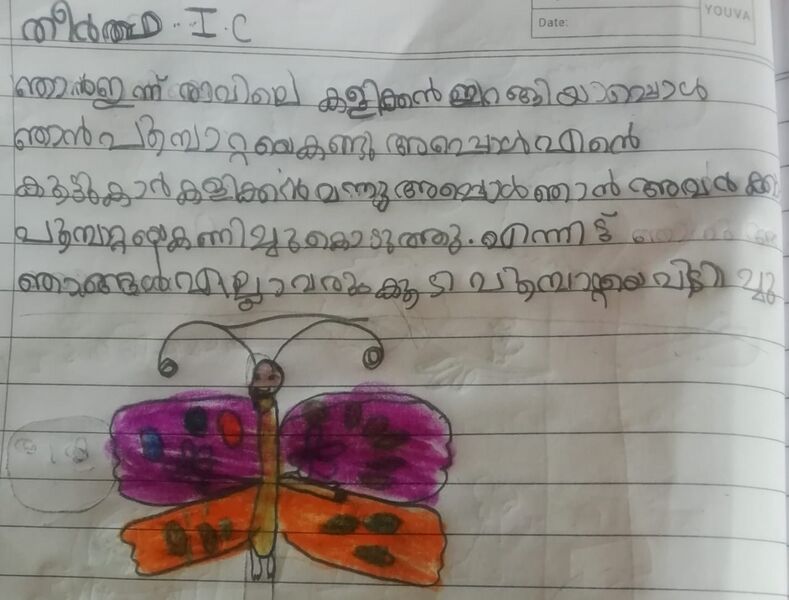 YOUVA
Date:
തീർത്ഥ . I. C
ഞാൻ ഇന്ന് രാവിലെ കളിക്കൻ ഇറങ്ങിയാപ്പൊൾ
ഞാൻ പൂമ്പാറ്റയെ കണ്ടു അപ്പൊൾ എന്റെ
കൂട്ടുകാർ കളിക്കൻ വന്നു അപ്പൊൾ ഞാൻ അവർക്ക്
പൂമ്പാറ്റയെ കണിച്ചു കൊടുത്തു. എന്നിട്ട്
ഞാങ്ങൾ എല്ലാവരും കൂടി പൂമ്പാറ്റയെ പിടിച്ചു